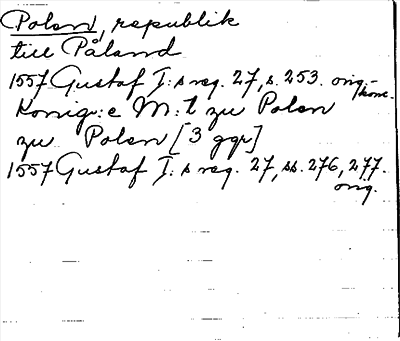 Polen, republik
till Påland
1557 Gustaf I:s reg. 27, s. 253. orig.-
konc.
Konig:e M:t zu Polen
zu Polen [3 ggr]
1557 Gustaf I:s reg. 27, ss. 276, 277.
orig.